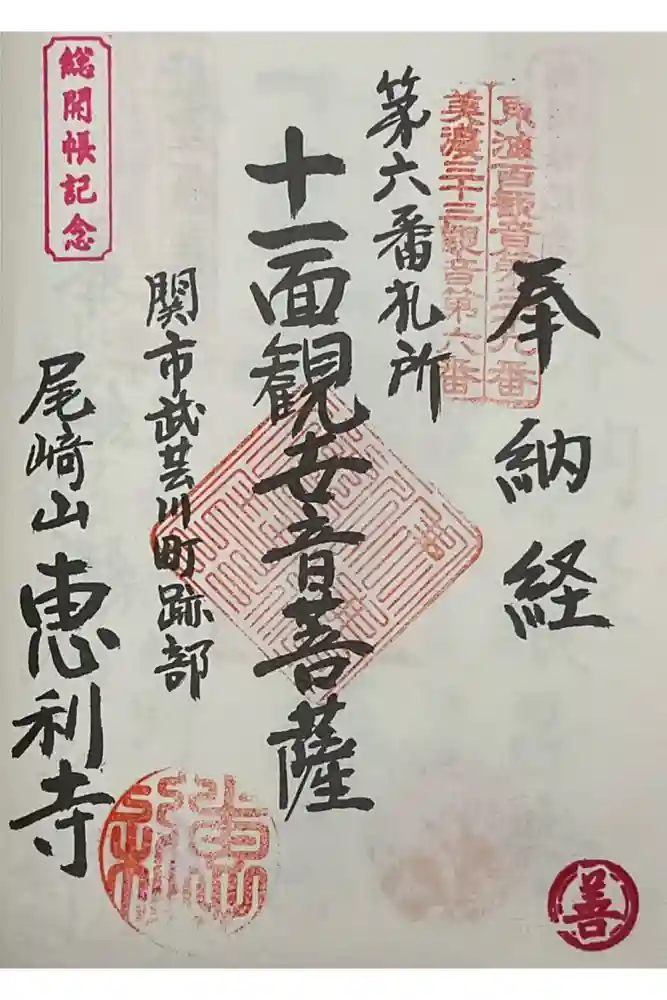 奉納経
東海百観音第三九番
美濃三十三観音第六番
第六番札所
十一面観世音菩薩
関市武芸川町跡部
尾﨑山 恵利寺
総開帳記念
善